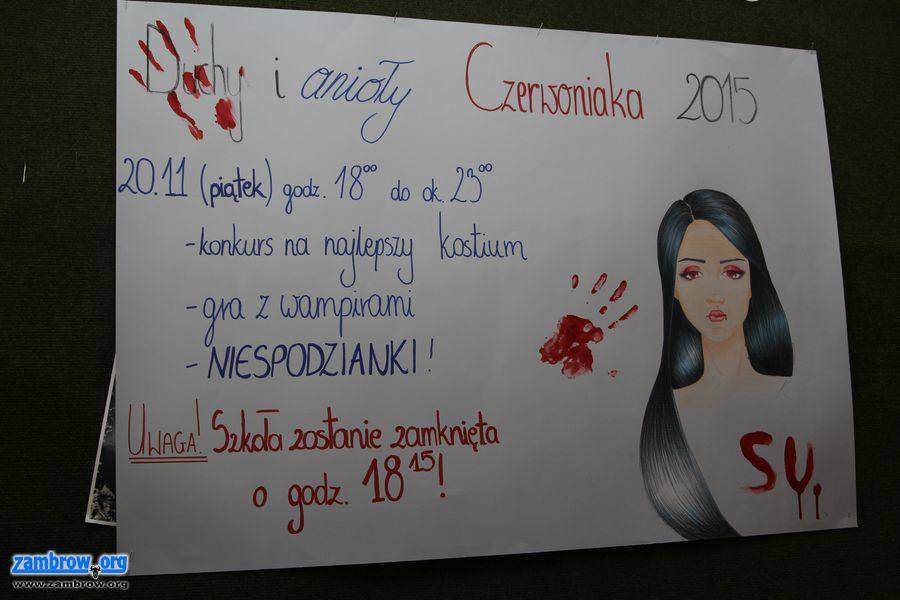 Duchy i anioły Czerwoniaka 2015
20.11 (piątek) godz. 18⁰⁰ do ok. 23⁰⁰
- konkurs na najlepszy kostium
- gra z wampirami
- NIESPODZIANKI!
UWAGA! Szkoła zostanie zamknięta
o godz. 18¹⁵!
SU
zambrow.org
www.zambrow.org